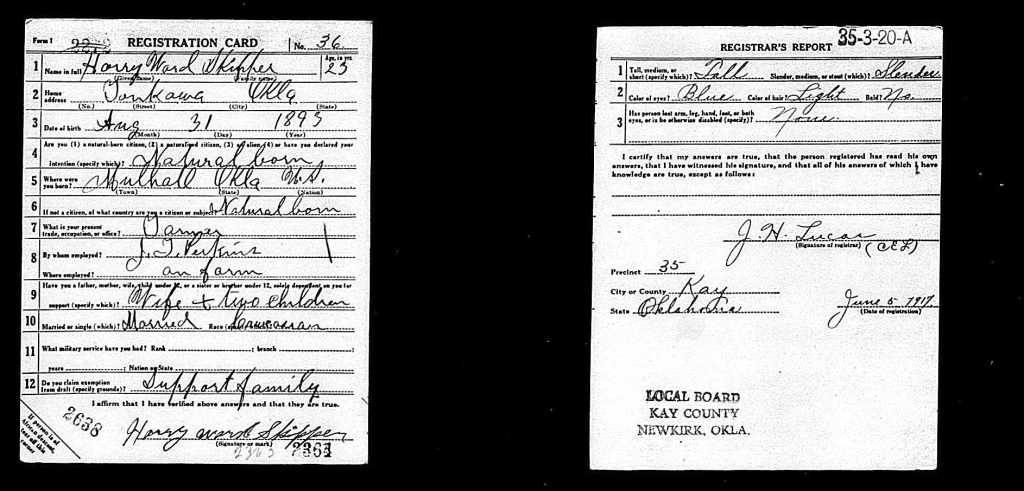 Form 1 REGISTRATION CARD No. 36
1 Name in full Harry Ward Skipper Age, in yrs. 23
(Given name) (Family name)
2 Home address Tonkawa Okla
(No.) (Street) (City) (State)
3 Date of birth Aug 31 1893
(Month) (Day) (Year)
4 Are you (1) a natural-born citizen, (2) a naturalized citizen, (3) an alien, (4) or have you declared your
intention (specify which)? Natural born
5 Where were you born? Mulhall Okla U.S.
(Town) (State) (Nation)
6 If not a citizen, of what country are you a citizen or subject? Natural born
7 What is your present trade, occupation, or office? Farmer
8 By whom employed? J. T. Perkins
Where employed? on farm
9 Have you a father, mother, wife, child under 12, or a sister or brother under 12, solely dependent on you for
support (specify which)? Wife + two children
10 Married or single (which)? Married Race (specify which)? Caucasian
11 What military service have you had? Rank ; branch ;
years ; Nation or State
12 Do you claim exemption from draft (specify grounds)? Support family
I affirm that I have verified above answers and that they are true.
2638
Harry Ward Skipper
(Signature or mark)
If person is of African descent, tear off this corner
2363
35-3-20-A
REGISTRAR'S REPORT
1 Tall, medium, or short (specify which)? Tall Slender, medium, or stout (which)? Slender
2 Color of eyes? Blue Color of hair? Light Bald? No
3 Has person lost arm, leg, hand, foot, or both
eyes, or is he otherwise disabled (specify)? None
I certify that my answers are true, that the person registered has read his own
answers, that I have witnessed his signature, and that all of his answers of which I have
knowledge are true, except as follows:
J. H. Lucas
(Signature of registrar)
Precinct 35
City or County Kay
State Oklahoma June 5 1917
(Date of registration)
LOCAL BOARD
KAY COUNTY
NEWKIRK, OKLA.